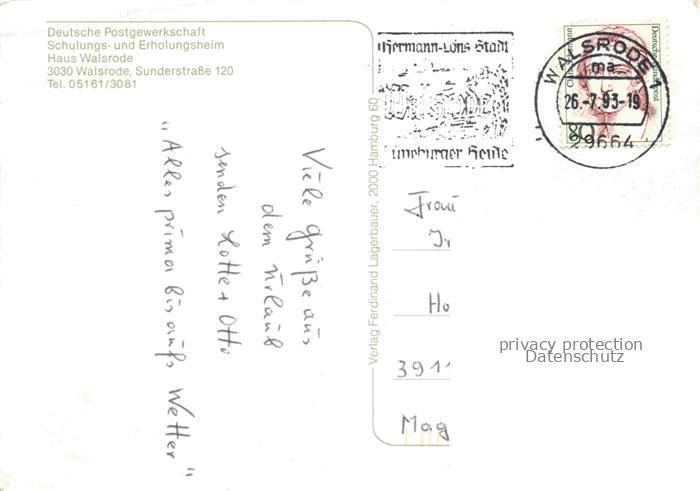 Deutsche Postgewerkschaft
Schulungs- und Erholungsheim
Haus Walsrode
3030 Walsrode, Sunderstraße 120
Tel. 05161/3081
Hermann-Löns Stadt
Walsrode
Lüneburger Heide
WALSRODE 1
ma
26.-7.93-19
29664
Deutsche Bundespost
80
Viele Grüße aus
dem Urlaub
senden Lotte + Otto
"Alles prima bis aufs Wetter"
Verlag Ferdinand Lagerbauer, 2000 Hamburg 60
Frau
Ho
3911
Mag
privacy protection
Datenschutz